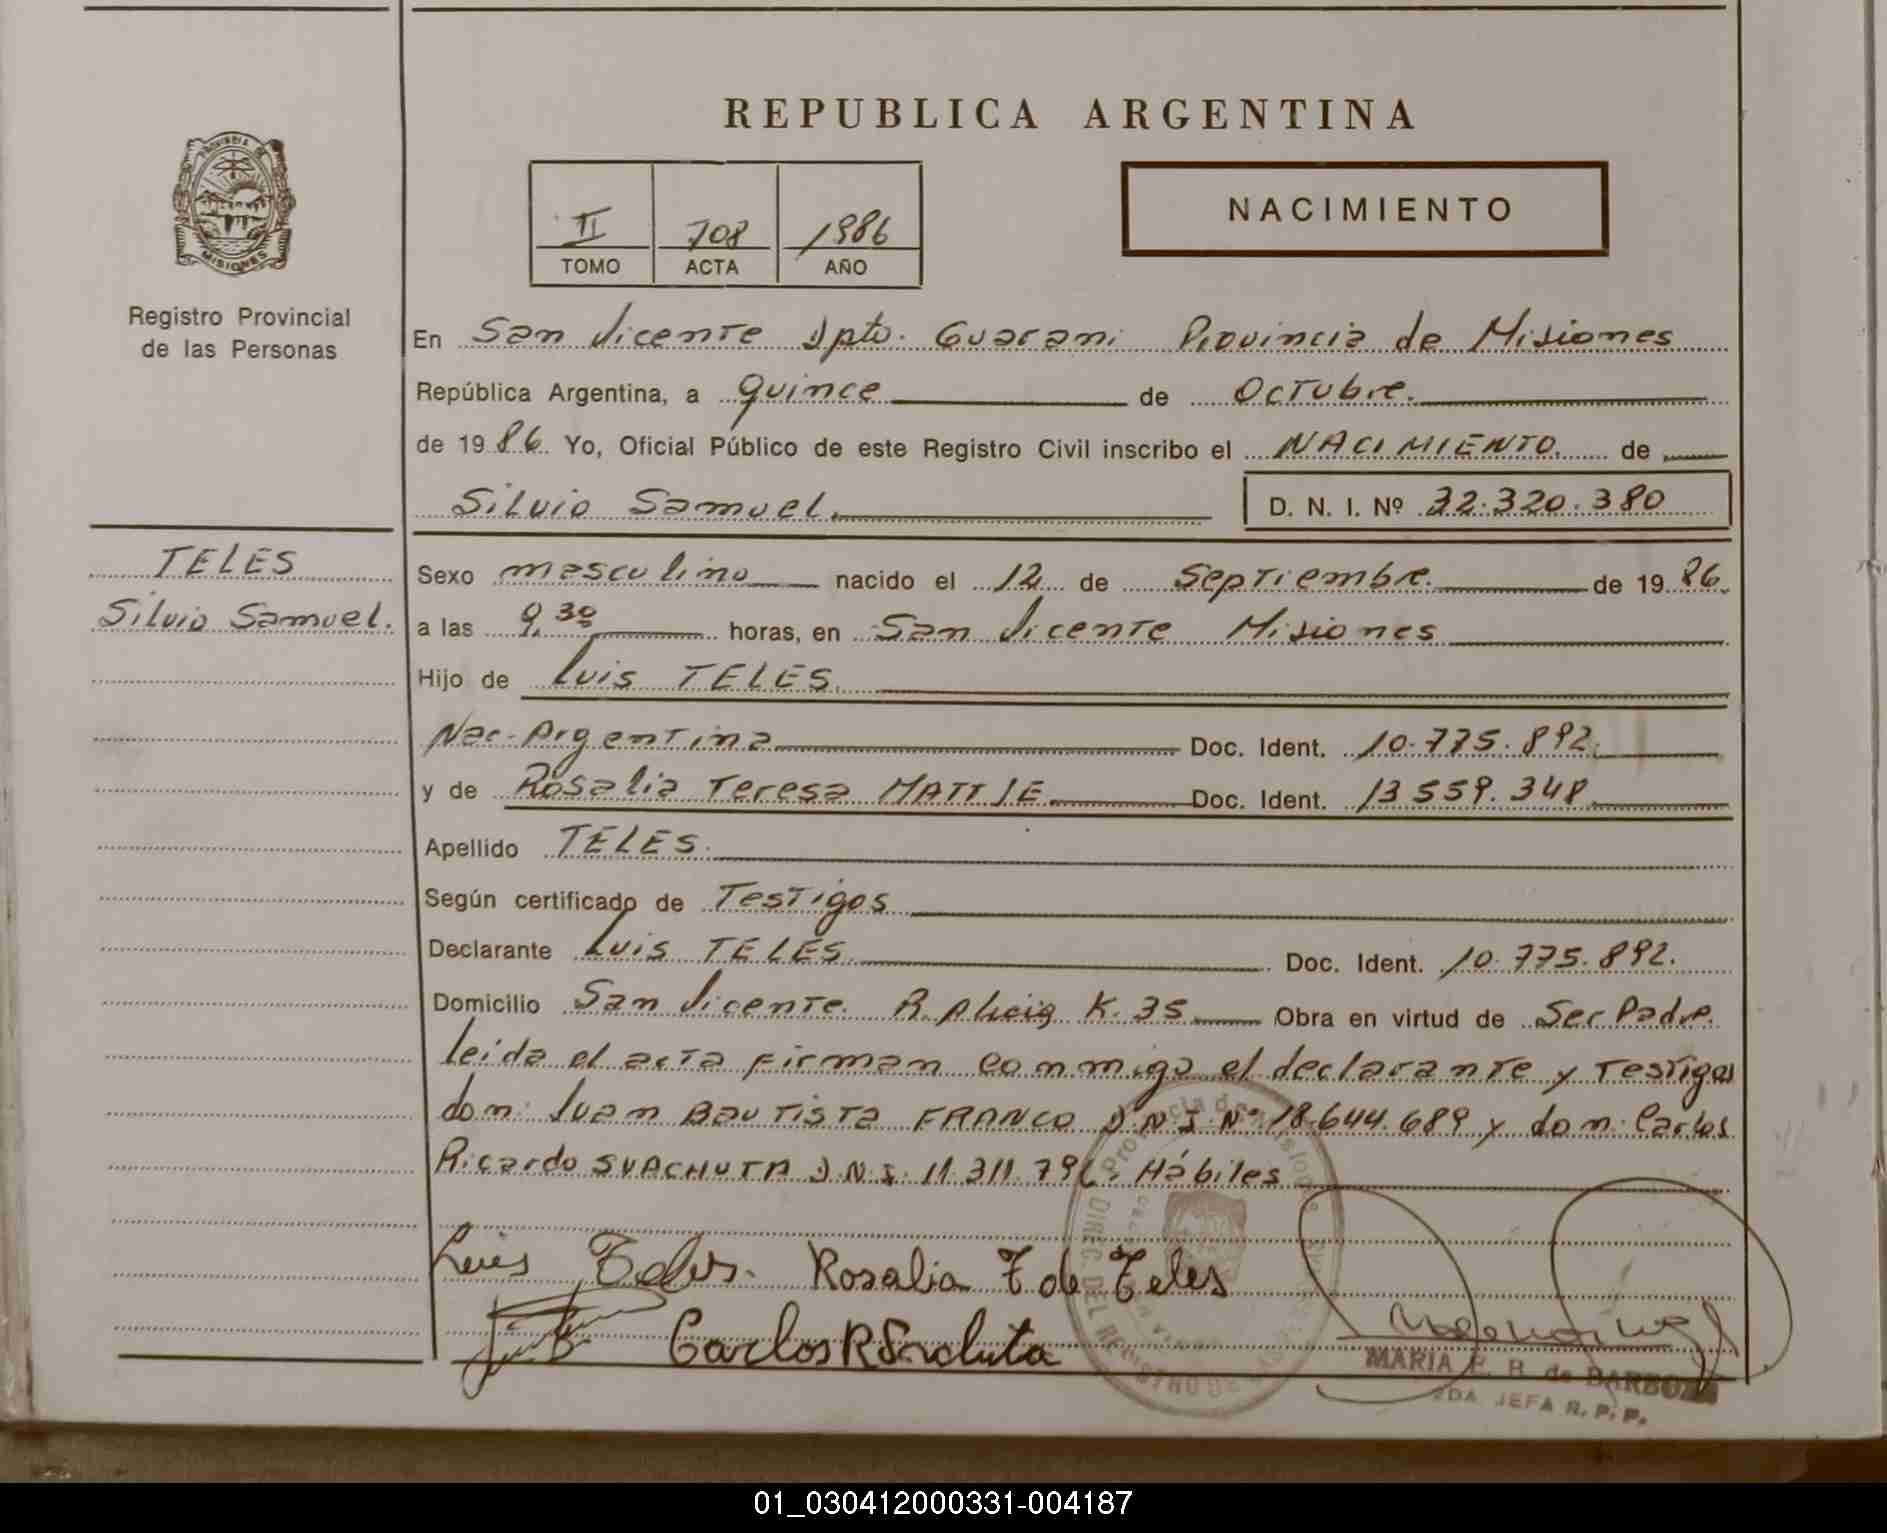 REPUBLICA ARGENTINA
PROVINCIA DE
MISIONES
Registro Provincial
de las Personas
II 708 1986
TOMO ACTA AÑO
NACIMIENTO
En San Vicente Dpto. Guarani Provincia de Misiones
República Argentina, a quince de Octubre.
de 1986. Yo, Oficial Público de este Registro Civil inscribo el NACIMIENTO. de
Silvio Samuel. D. N. I. Nº 32.320.380
TELES
Silvio Samuel.
Sexo masculino nacido el 12 de Septiembre. de 1986.
a las 9,30 horas, en San Vicente Misiones
Hijo de Luis TELES.
Nac. Argentina Doc. Ident. 10.775.892.
y de Rosalia Teresa MATTJE Doc. Ident. 13.559.348
Apellido TELES.
Según certificado de Testigos
Declarante Luis TELES. Doc. Ident. 10.775.892.
Domicilio San Vicente. R. K. 35 Obra en virtud de Ser Padre.
leida el acta firman conmigo el declarante y Testigos
don: Juan Bautista FRANCO D.N.I. Nº 18.644.689 y don: Carlos
Ricardo SVACHUTA D.N.I. 11.311.796. Hábiles
Luis Teles. Rosalia T de Teles
Carlos R Svachuta
Provincia de Misiones
DIREC. DEL REGISTRO DE
MARIA E. R. de BARBOZA
2DA JEFA R. P. P.
01_030412000331-004187